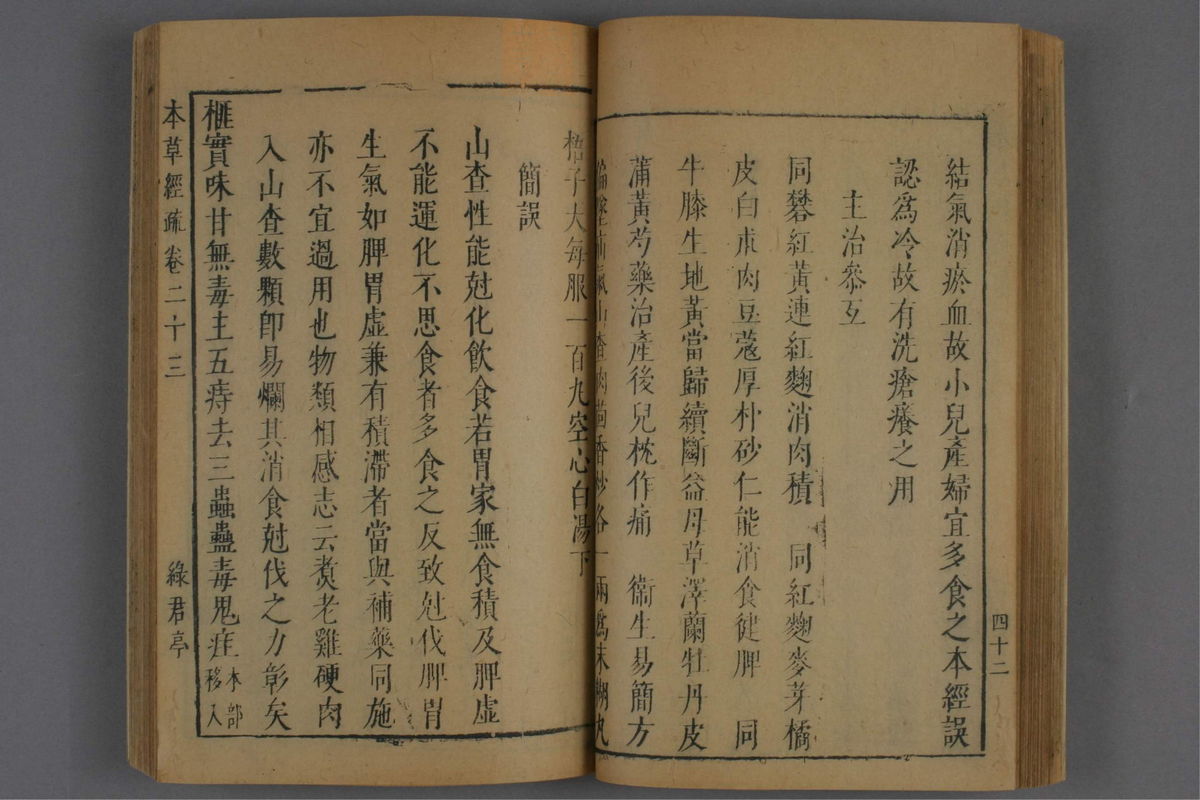 結氣消瘀血故小兒產婦宜多食之本經誤
認爲冷故有洗瘡癢之用
主治叅互
同礬紅黃連紅麴消肉積　同紅麴麥芽橘
皮白朮肉豆蔻厚朴砂仁能消食健脾　同
牛膝生地黃當歸續斷益母草澤蘭牡丹皮
蒲黃芍藥治產後兒枕作痛　衞生易簡方
山查肉茴香炒各一兩爲末糊丸
梧子大每服一百丸空心白湯下
簡誤
山查性能尅化飲食若胃家無食積及脾虛
不能運化不思食者多食之反致尅伐脾胃
生氣如脾胃虛兼有積滯者當與補藥同施
亦不宜過用也物類相感志云煑老雞硬肉
入山查數顆卽易爛其消食尅伐之力彰矣
榧實味甘無毒主五痔去三蟲蠱毒鬼疰
本部
移入
四十二
本草經疏卷二十三
綠君亭